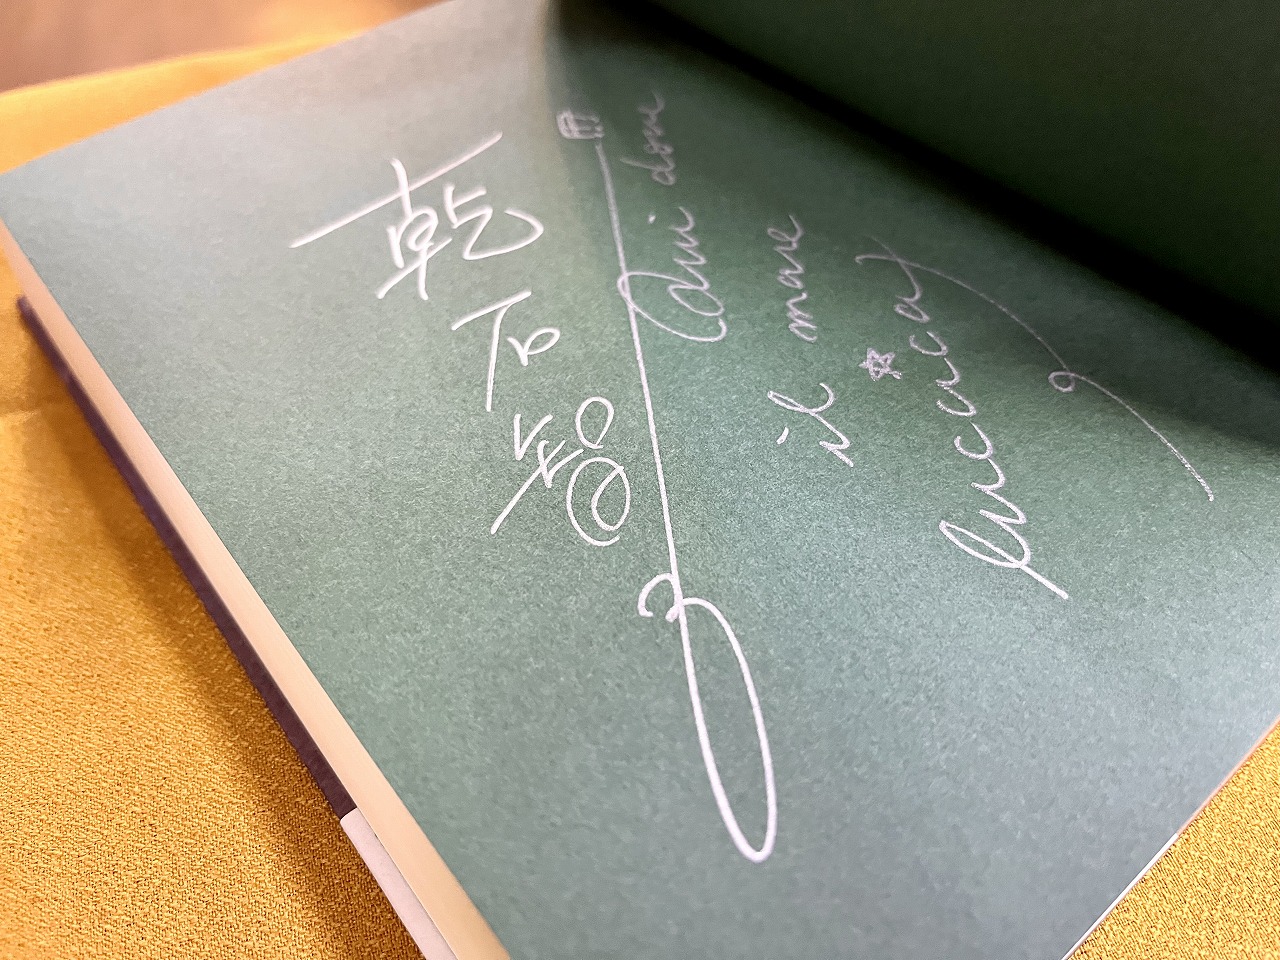 乾石智子
Qui dove
il mare
luccica